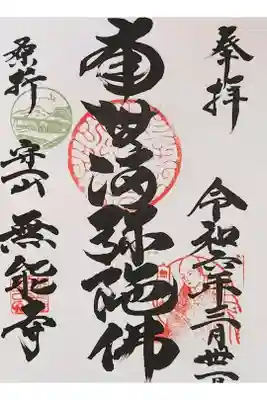 奉拝
令和六年三月卅一日
南無阿弥陀佛
桑折
守一山 無能寺